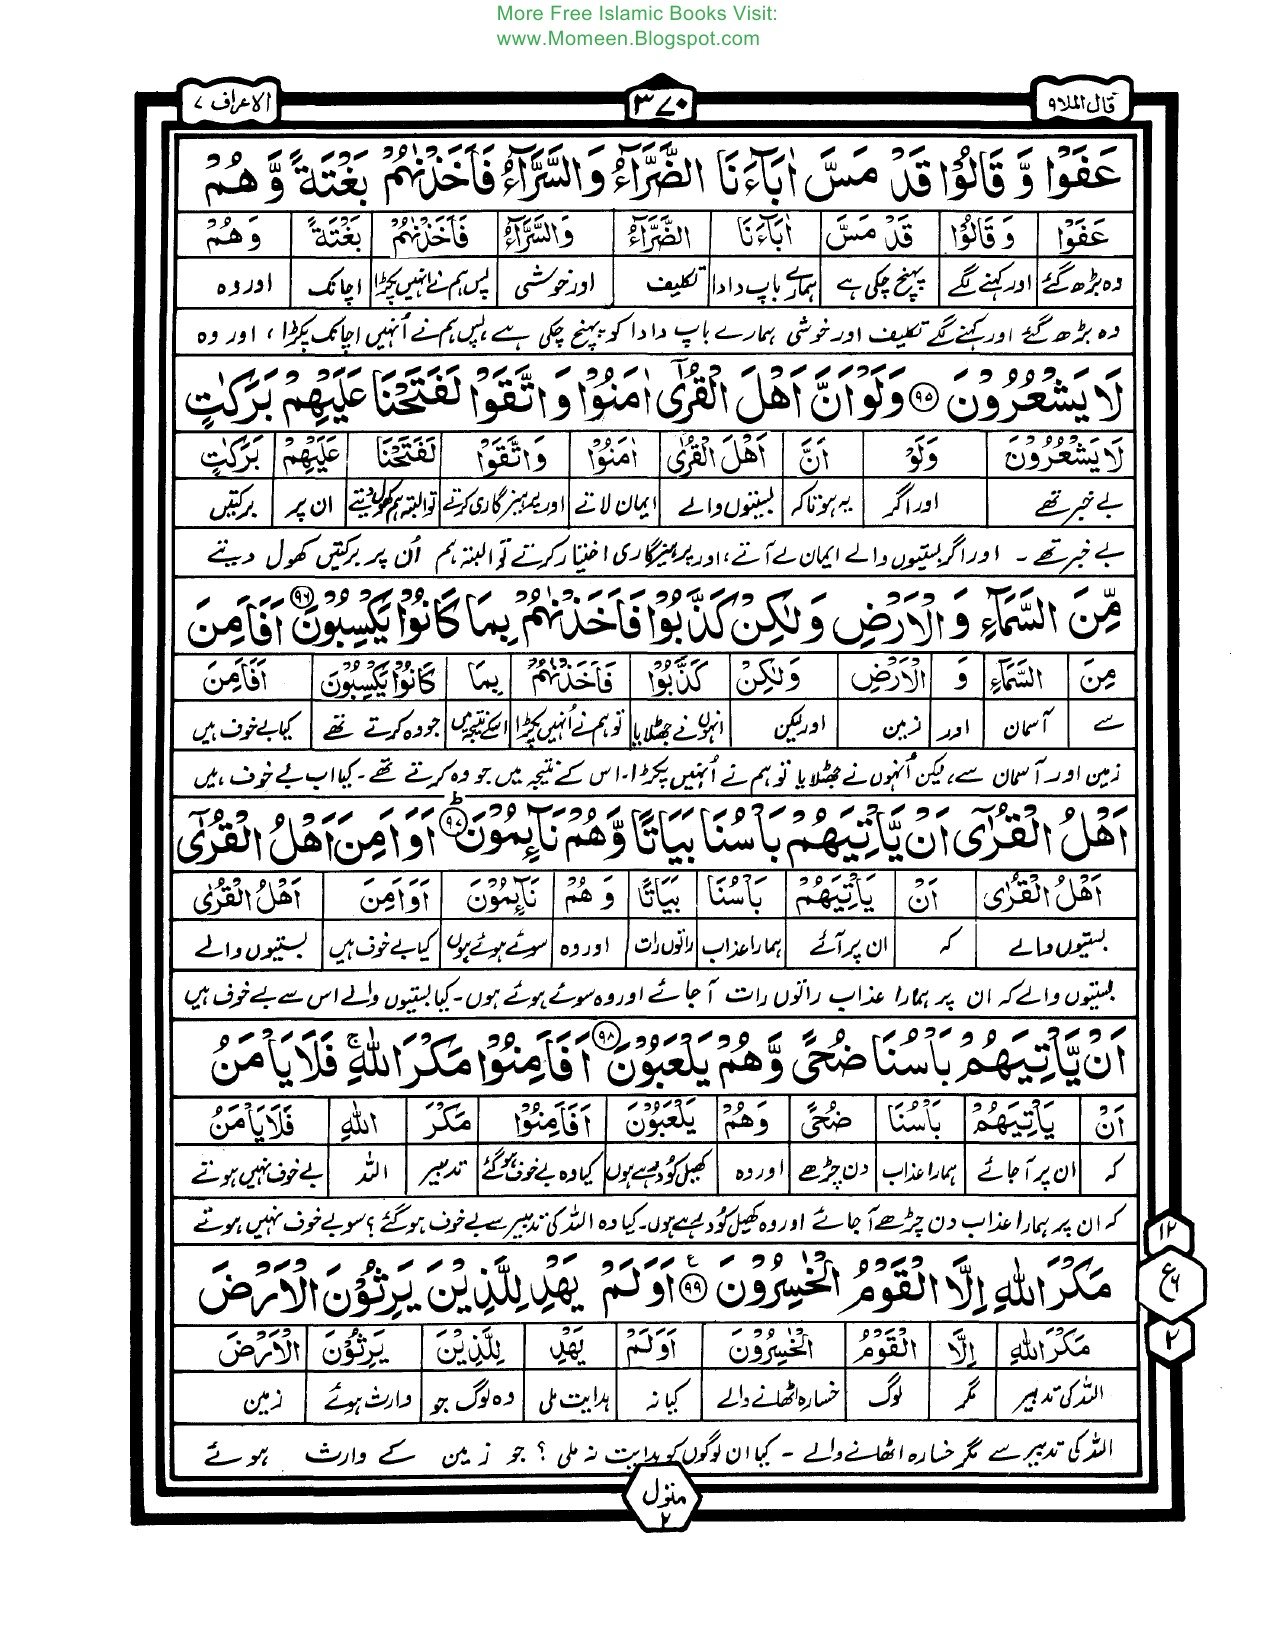 More Free Islamic Books Visit:
www.Momeen.Blogspot.com
قال الملا۹ ۳۷۰ الاعراف ۷
عَفَوْا وَّ قَالُوْا قَدْ مَسَّ اٰبَآءَنَا الضَّرَّآءُ وَالسَّرَّآءُ فَاَخَذْنٰهُمْ بَغْتَةً وَّ هُمْ
عَفَوْا وَ قَالُوْا قَدْ مَسَّ اٰبَآءَنَا الضَّرَّآءُ وَالسَّرَّآءُ فَاَخَذْنٰهُمْ بَغْتَةً وَ هُمْ
وہ بڑھ گئے اور کہنے لگے پہنچ چکی ہے ہمارے باپ دادا تکلیف اور خوشی پس ہم نے انہیں پکڑا اچانک اور وہ
وہ بڑھ گئے اور کہنے لگے تکلیف اور خوشی ہمارے باپ دادا کو پہنچ چکی ہے پس ہم نے اُنہیں اچانک پکڑا ، اور وہ
لَا يَشْعُرُوْنَ ۹۵ وَلَوْ اَنَّ اَهْلَ الْقُرٰٓى اٰمَنُوْا وَ اتَّقَوْا لَفَتَحْنَا عَلَيْهِمْ بَرَكٰتٍ
لَا يَشْعُرُوْنَ وَلَوْ اَنَّ اَهْلَ الْقُرٰٓى اٰمَنُوْا وَ اتَّقَوْا لَفَتَحْنَا عَلَيْهِمْ بَرَكٰتٍ
بے خبر تھے اور اگر یہ ہوتا کہ بستیوں والے ایمان لاتے اور پرہیزگاری کرتے تو البتہ ہم کھول دیتے ان پر برکتیں
بے خبر تھے ۔ اور اگر بستیوں والے ایمان لے آتے ، اور پرہیزگاری اختیار کرتے تو البتہ ہم اُن پر برکتیں کھول دیتے
مِّنَ السَّمَآءِ وَ الْاَرْضِ وَلٰكِنْ كَذَّبُوْا فَاَخَذْنٰهُمْ بِمَا كَانُوْا يَكْسِبُوْنَ ۹۶ اَفَاَمِنَ
مِنَ السَّمَآءِ وَ الْاَرْضِ وَلٰكِنْ كَذَّبُوْا فَاَخَذْنٰهُمْ بِمَا كَانُوْا يَكْسِبُوْنَ اَفَاَمِنَ
سے آسمان اور زمین اور لیکن انہوں نے جھٹلایا تو ہم نے اُنہیں پکڑا اسکے نتیجہ میں جو وہ کرتے تھے کیا بے خوف ہیں
زمین اور آسمان سے ، لیکن اُنہوں نے جھٹلایا تو ہم نے اُنہیں پکڑا ۔ اس کے نتیجہ میں جو وہ کرتے تھے ۔ کیا اب بے خوف ہیں
اَهْلُ الْقُرٰٓى اَنْ يَّاْتِيَهُمْ بَاْسُنَا بَيَاتًا وَّهُمْ نَآئِمُوْنَ ۹۷ ط اَوَ اَمِنَ اَهْلُ الْقُرٰٓى
اَهْلُ الْقُرٰٓى اَنْ يَاْتِيَهُمْ بَاْسُنَا بَيَاتًا وَ هُمْ نَآئِمُوْنَ اَوَ اَمِنَ اَهْلُ الْقُرٰى
بستیوں والے کہ ان پر آئے ہمارا عذاب راتوں رات اور وہ سوئے ہوئے ہوں کیا بے خوف ہیں بستیوں والے
بستیوں والے کہ ان پر ہمارا عذاب راتوں رات آ جائے اور وہ سوئے ہوئے ہوں ۔ کیا بستیوں والے اس سے بے خوف ہیں
اَنْ يَّاْتِيَهُمْ بَاْسُنَا ضُحًى وَّ هُمْ يَلْعَبُوْنَ ۹۸ اَفَاَمِنُوْا مَكْرَ اللّٰهِ ۚ فَلَا يَاْمَنُ
اَنْ يَاْتِيَهُمْ بَاْسُنَا ضُحًى وَهُمْ يَلْعَبُوْنَ اَفَاَمِنُوْا مَكْرَ اللّٰهِ فَلَا يَاْمَنُ
کہ ان پر آ جائے ہمارا عذاب دن چڑھے اور وہ کھیل کود رہے ہوں کیا وہ بے خوف ہو گئے تدبیر اللہ بے خوف نہیں ہوتے
کہ ان پر ہمارا عذاب دن چڑھے آ جائے اور وہ کھیل کود رہے ہوں ۔ کیا وہ اللہ کی تدبیر سے بے خوف ہو گئے ؟ سو بے خوف نہیں ہوتے
مَكْرَ اللّٰهِ اِلَّا الْقَوْمُ الْخٰسِرُوْنَ ۹۹ ع اَوَ لَمْ يَهْدِ لِلَّذِيْنَ يَرِثُوْنَ الْاَرْضَ
مَكْرَ اللّٰهِ اِلَّا الْقَوْمُ الْخٰسِرُوْنَ اَوَ لَمْ يَهْدِ لِلَّذِيْنَ يَرِثُوْنَ الْاَرْضَ
اللہ کی تدبیر مگر لوگ خسارہ اٹھانے والے کیا نہ ہدایت ملی وہ لوگ جو وارث ہوئے زمین
اللہ کی تدبیر سے مگر خسارہ اٹھانے والے ۔ کیا ان لوگوں کو ہدایت نہ ملی ؟ جو زمین کے وارث ہوئے
۱۲
ع ۶
۲
منزل
۲